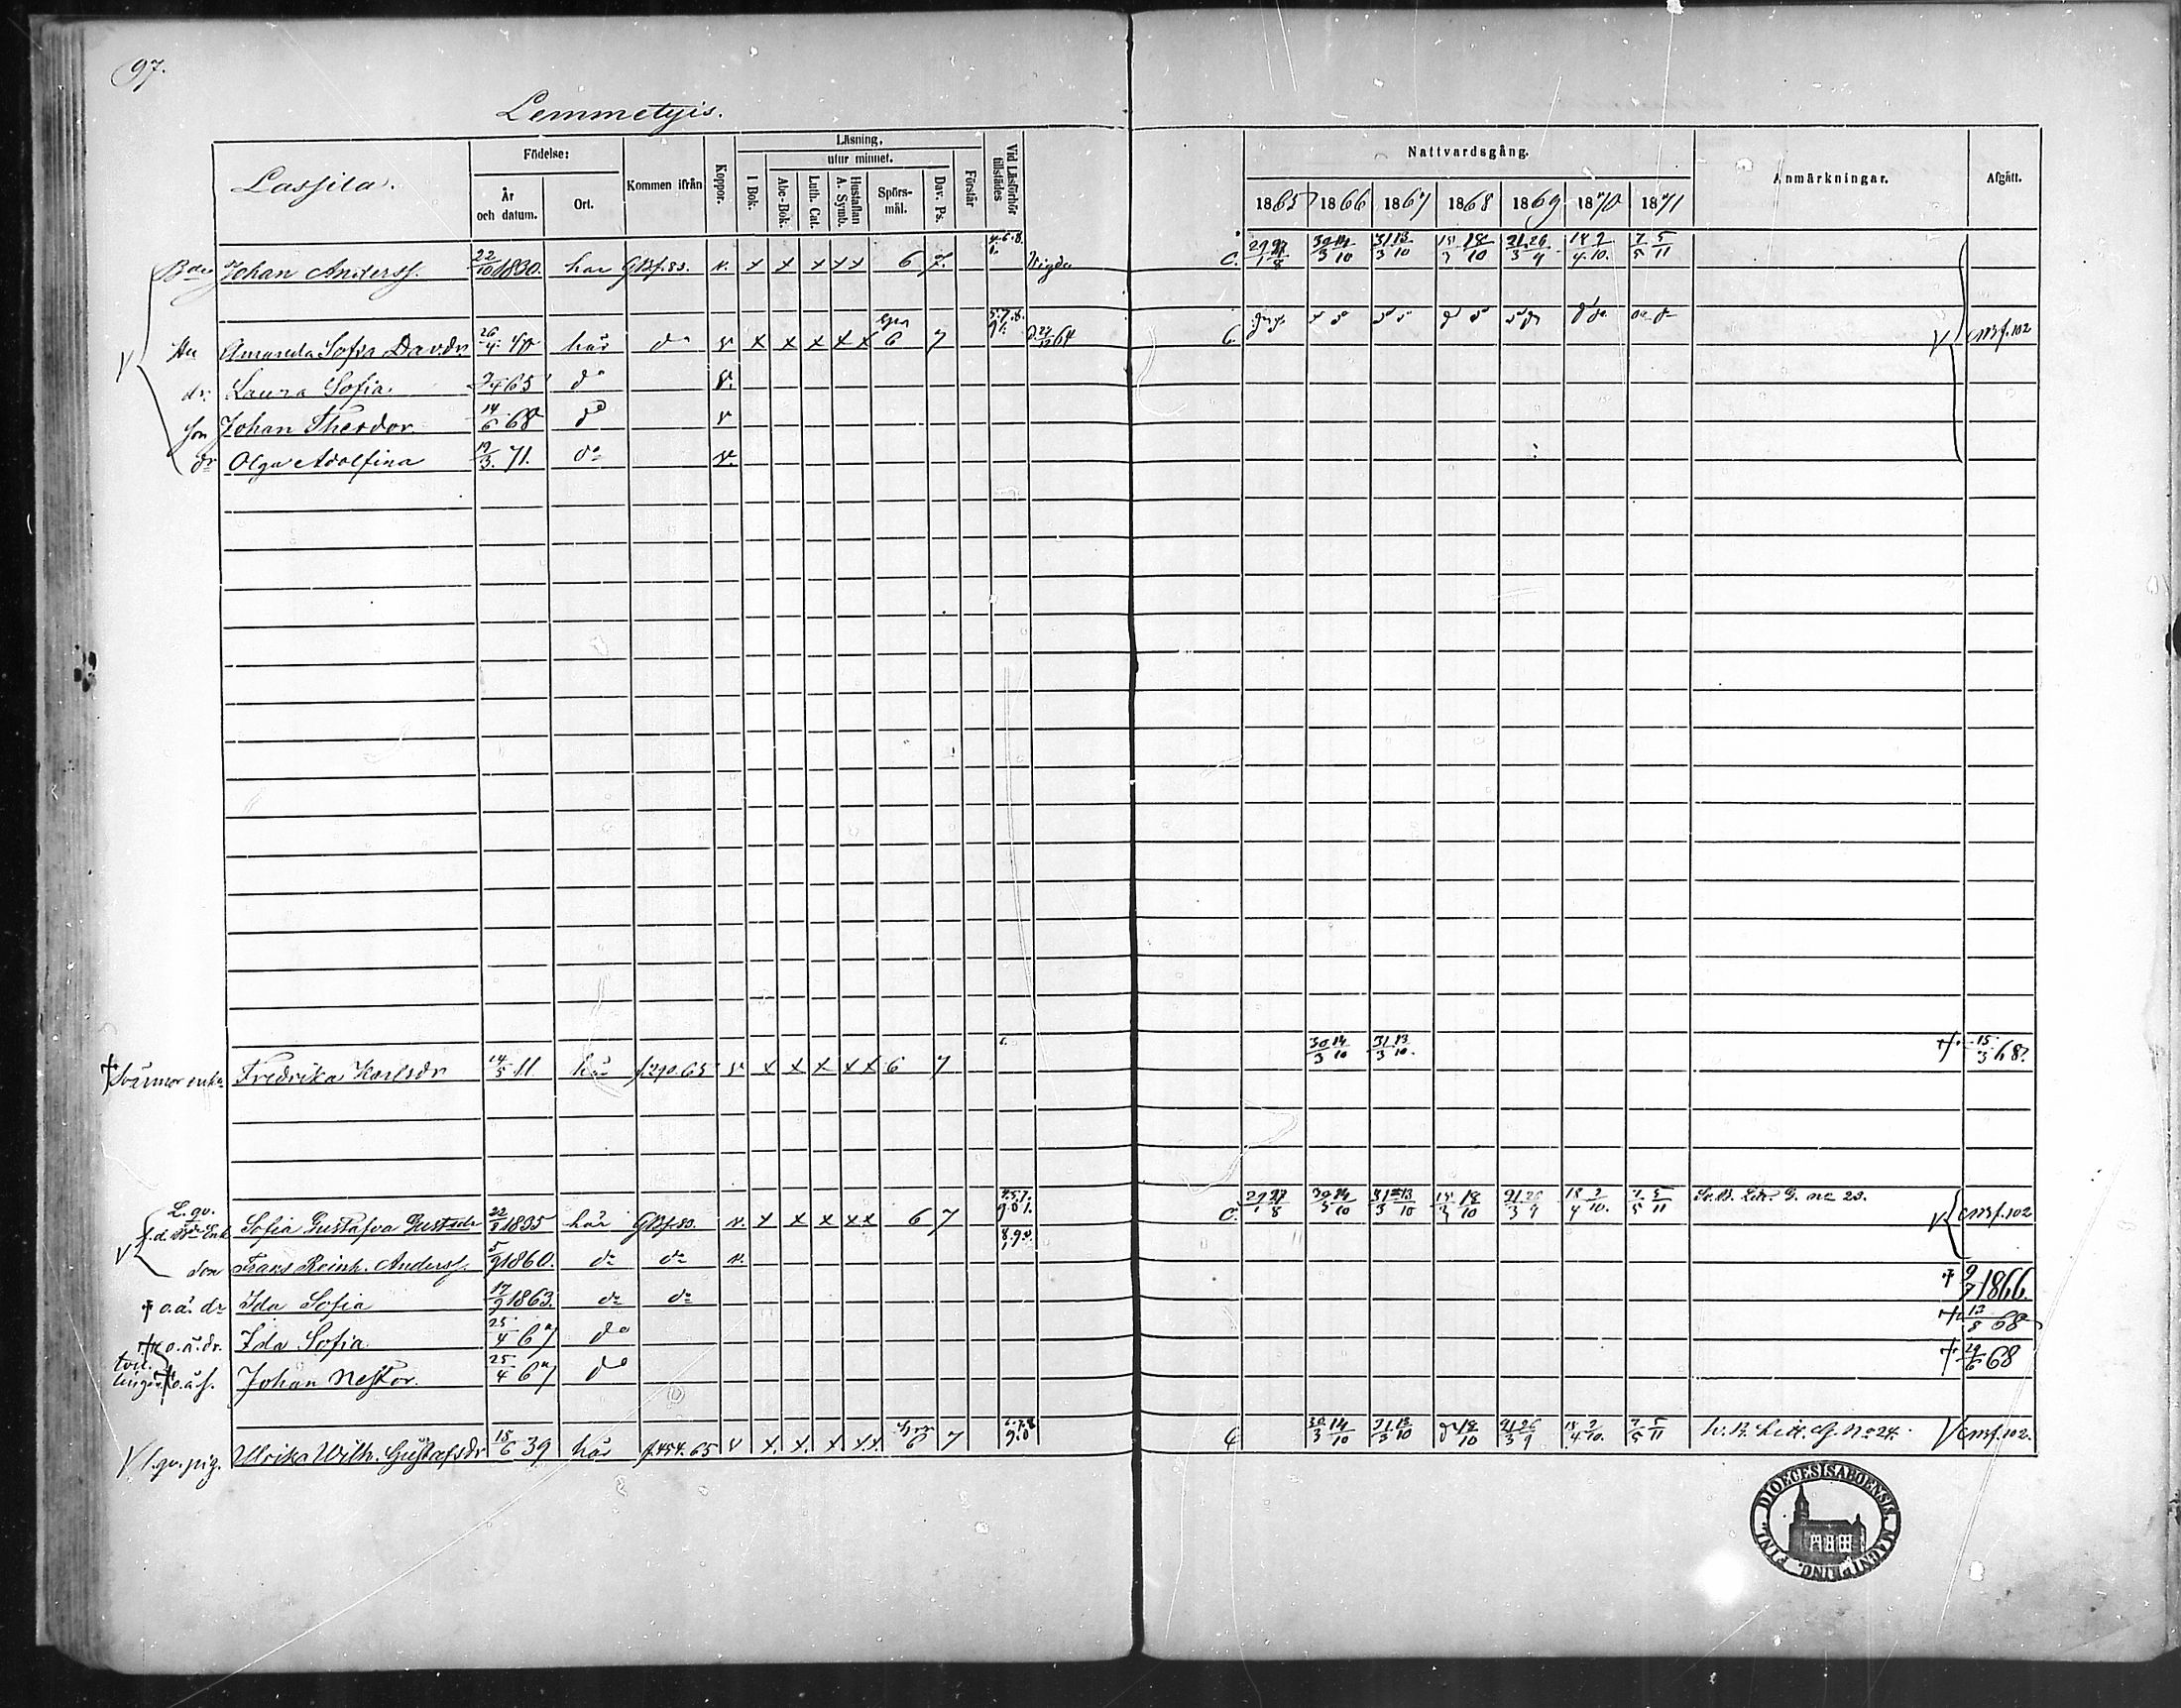 97.
Lemmetyis.
Lassila.
Födelse:
År och datum.
Ort.
Kommen ifrån
Koppor.
Läsning,
utur minnet.
I Bok.
Abc-Bok.
Luth. Cat.
Hustaflan A. Symb.
Spörsmål.
Dav. Ps.
Förstår
Vid Läsförhör tillstädes
Nattvardsgång.
1865 1866 1867 1868 1869 1870 1871
Anmärkningar.
Afgått.
Johan Anderss. 22/10 1830. här GBf.83. v. x x x x x 6 7. Vigde C. 30/3 14/10 31/3 13/10 18/10 21/3 26/9 18/4 2/10. 7/5 5/11
Hu Amanda Sofia Davdr 26/4 40 här do v x x x x x 6 7 64 C. CMBf.102
dr. Laura Sofia. 65 do v.
son Johan Theodor. 14/6 68 do v
dr Olga Adolfina 19/3. 71. do v.
Svärmor enka Fredrika Karlsdr 14/5 11 här f.290.65 v x x x x x 6 7 30/3 14/10 31/3 13/10. † 15/3 68.
L. gv.
f.d. Bde Enk. Sofia Gustafva Gustsdr 1835 här GBf.83. v. x x x x x 6 7 C. 30/3 14/10 31/3 13/10 18/10 21/3 26/9 18/4 2/10. 7/5 5/11 CMBf.102
Son Frans Reinh. Anderss. 5/9 1860. do do v.
† o.ä. dr Ida Sofia 17/9 1863. do do † 1866.
† o.ä. dr. Ida Sofia. 25/4 67 do † 68
tvillingar † o.ä. s. Johan Nestor. 25/4 67 do † 68
l.gv. pig. Ulrika Wilh. Gustafsdr 15/6 39 här f.454.65 v x. x. x x x. 6 7 C 30/3 14/10 31/3 13/10 18/10 21/3 26/9 18/4 2/10. 7/5 5/11 No 24. CMBf.102.
DIOECESIS ABOENSIS. MAGNI PRINC. FINL.